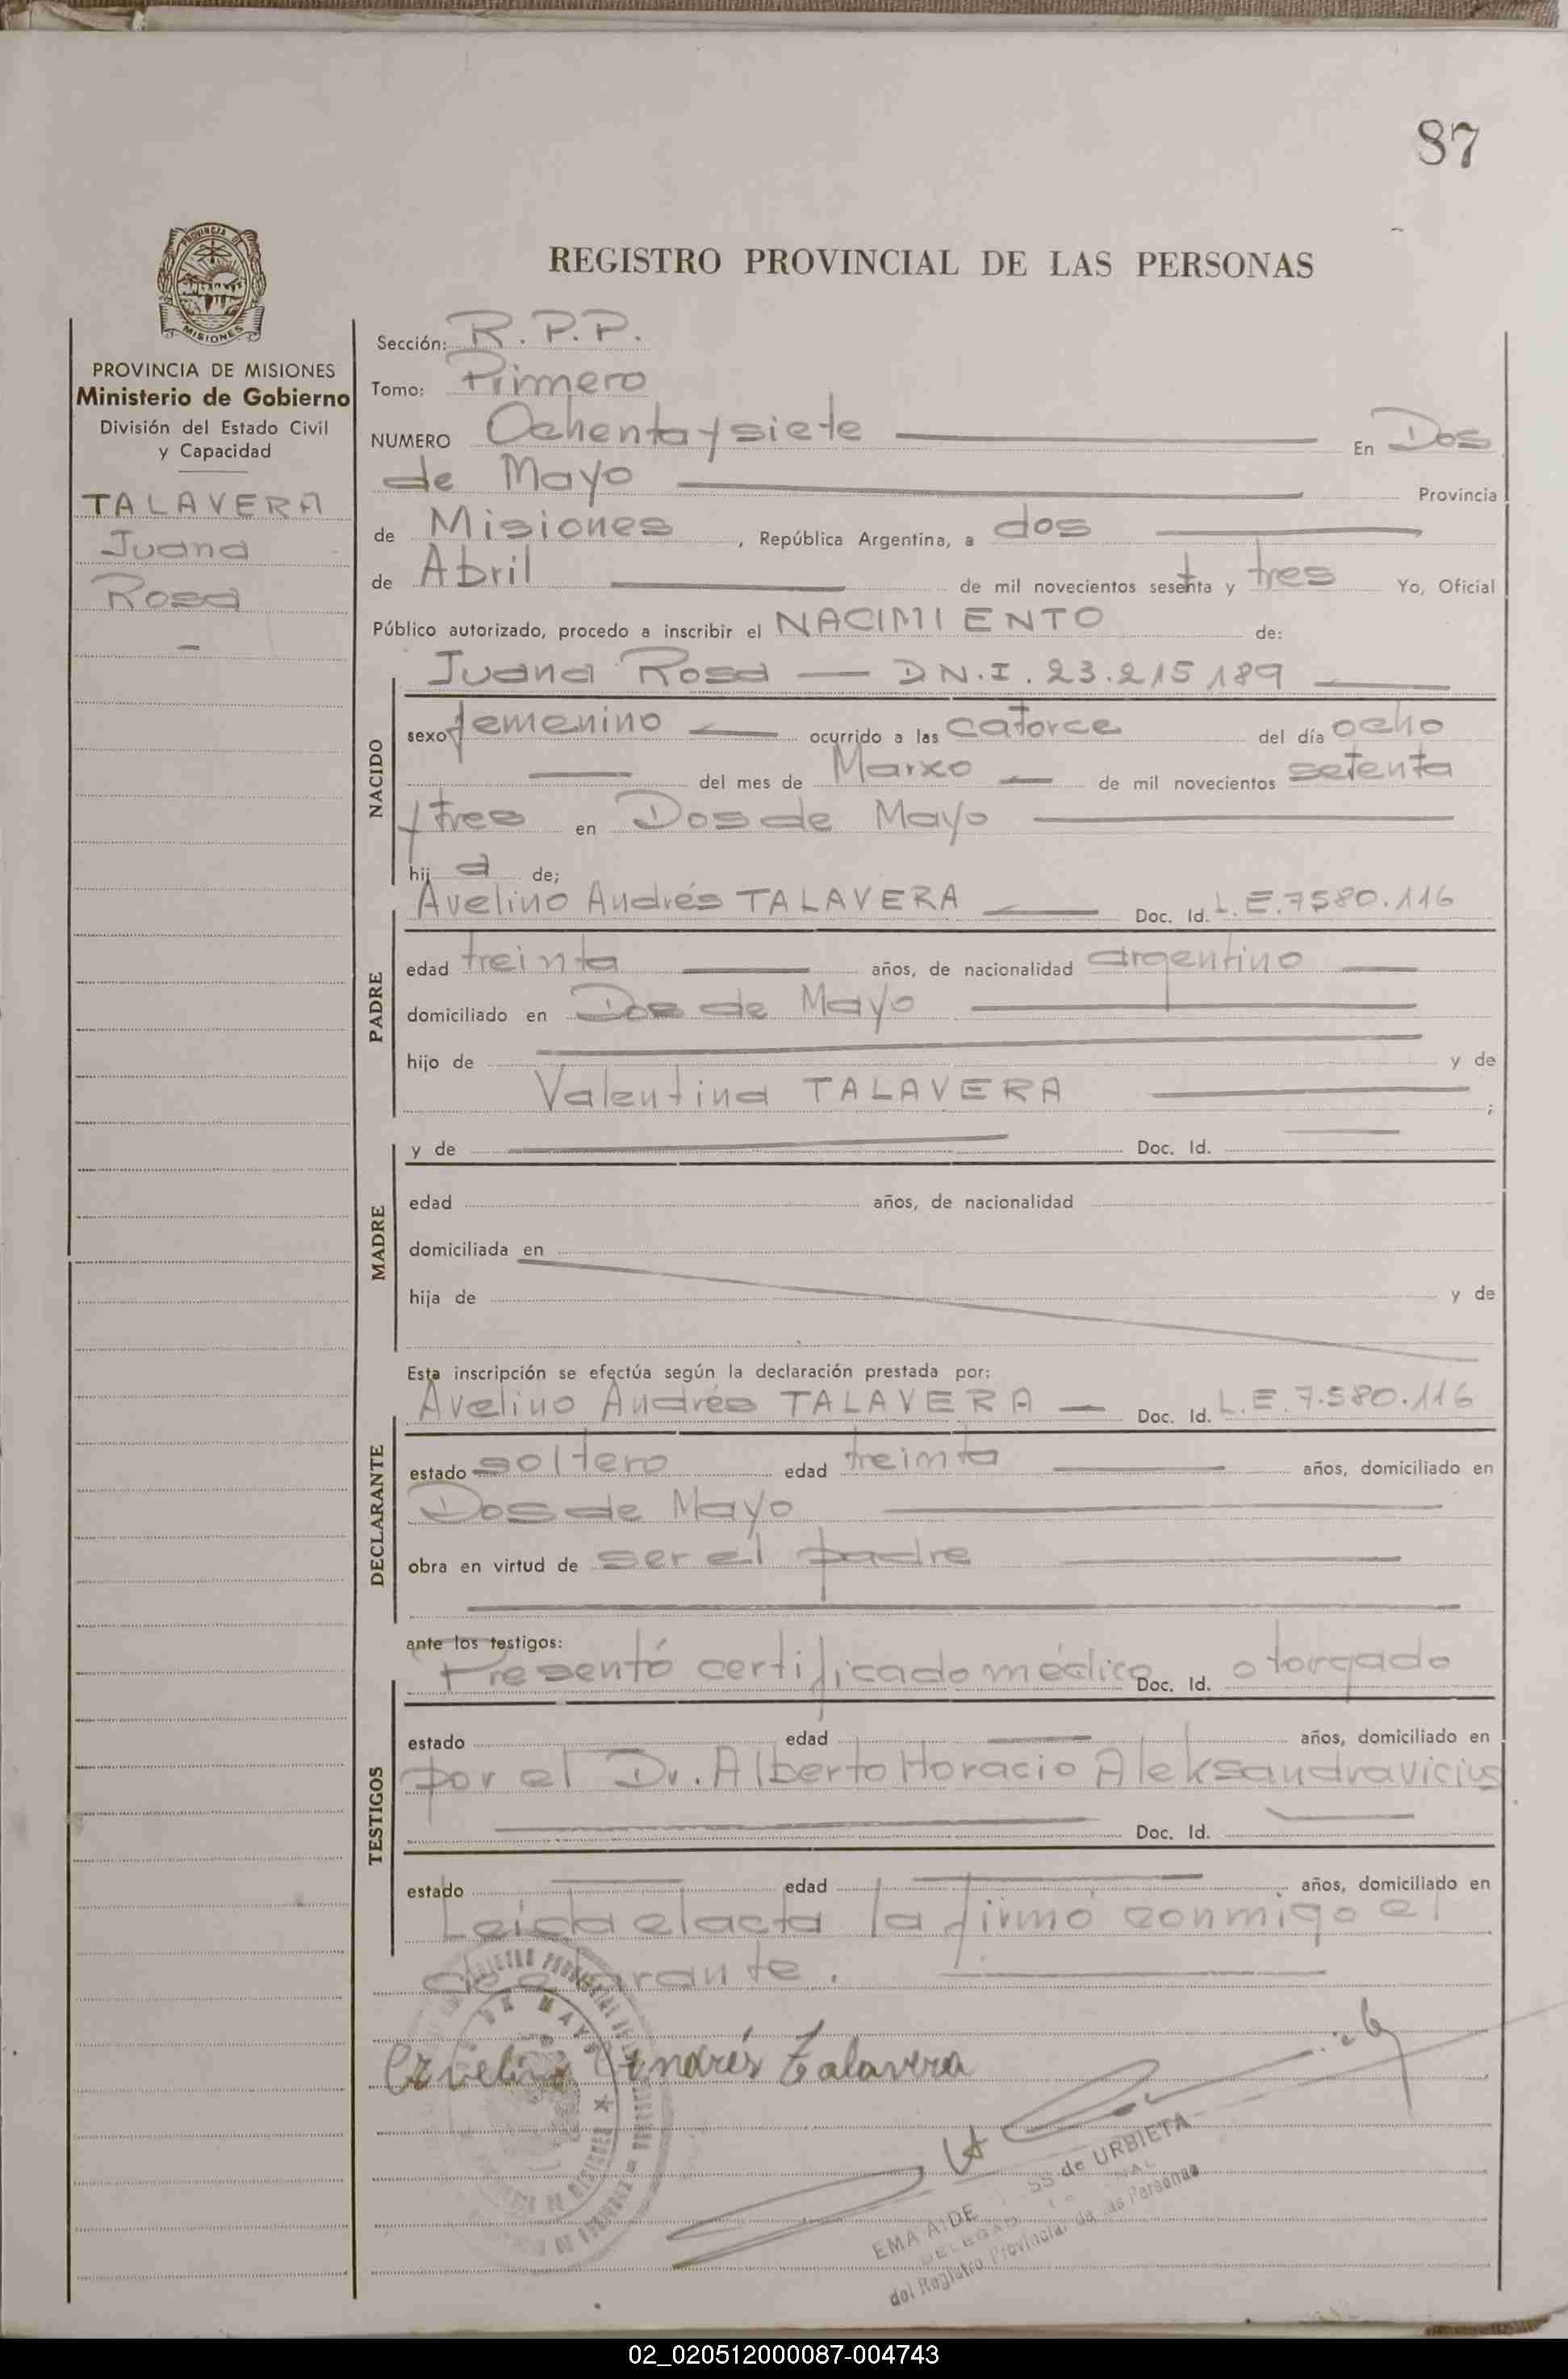 87
PROVINCIA DE
MISIONES
REGISTRO PROVINCIAL DE LAS PERSONAS
PROVINCIA DE MISIONES
Ministerio de Gobierno
División del Estado Civil
y Capacidad
TALAVERA
Juana
Rosa
Sección: R.P.P.
Tomo: Primero
NUMERO Ochenta y siete En Dos
de Mayo Provincia
de Misiones, República Argentina, a dos
de Abril de mil novecientos setenta y tres Yo, Oficial
Público autorizado, procedo a inscribir el NACIMIENTO de:
Juana Rosa — D N.I. 23.215.189
NACIDO
sexo femenino ocurrido a las catorce del día ocho
del mes de Marzo de mil novecientos setenta
y tres en Dos de Mayo
hij a de;
Avelino Andrés TALAVERA Doc. Id. L.E. 7580.116
PADRE
edad treinta años, de nacionalidad argentino
domiciliado en Dos de Mayo
hijo de y de
Valentina TALAVERA ;
y de Doc. Id.
MADRE
edad años, de nacionalidad
domiciliada en
hija de y de
Esta inscripción se efectúa según la declaración prestada por:
Avelino Andrés TALAVERA — Doc. Id. L.E. 7.580.116
DECLARANTE
estado soltero edad treinta años, domiciliado en
Dos de Mayo
obra en virtud de ser el padre
ante los testigos:
Presentó certificado médico Doc. Id. otorgado
TESTIGOS
estado edad años, domiciliado en
por el Dr. Alberto Horacio Aleksandravicius
Doc. Id.
estado edad años, domiciliado en
Leída el acta la firmó conmigo el
declarante.
Avelino Andrés Talavera
EMA AIDE SS de URBIETA
del Registro Provincial de las Personas
02_020512000087-004743